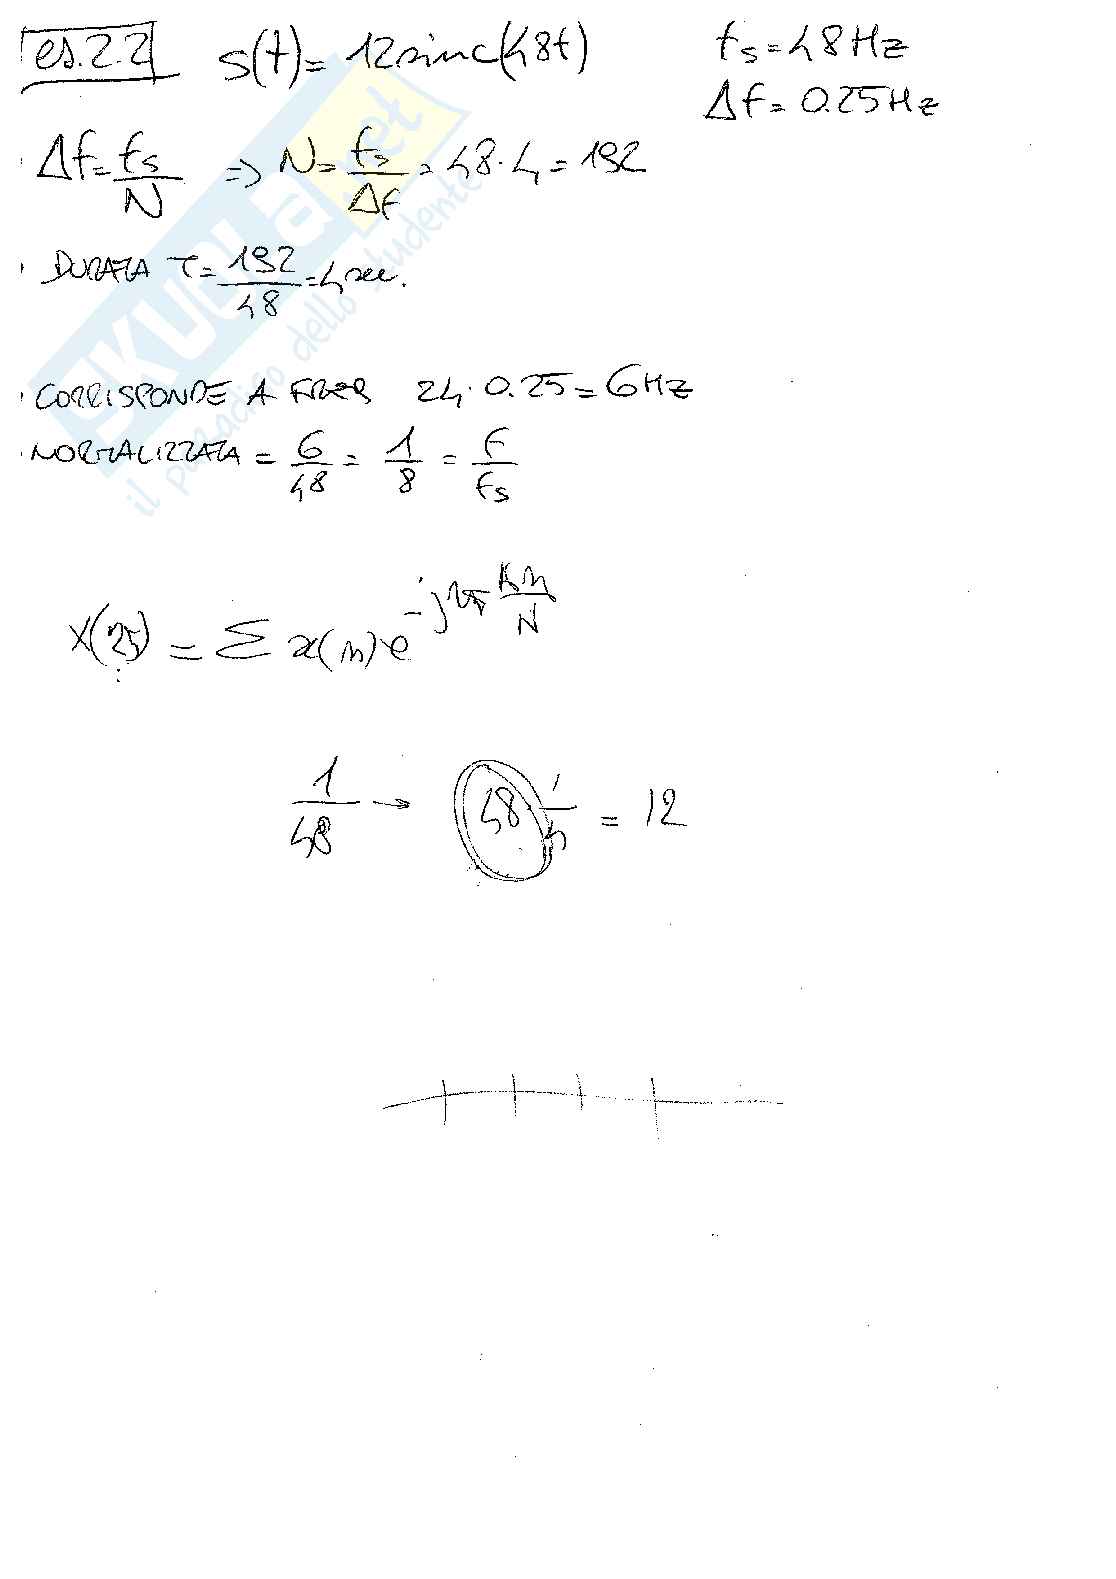 es.2.2 s(t)= 12 sinc(48t) fs=48Hz
Δf= 0.25Hz
Δf= fs/N => N= fs/Δf = 48·4= 192
· DURATA τ= 192/48 =4 sec.
· CORRISPONDE A FREQ 24·0.25=6Hz
· NORMALIZZATA = 6/48 = 1/8 = f/fs
X(25) = Σ x(n)·e^-j2π kn/N
1/48 → 48·1/4 = 12
SKUOLA.net
il paradiso dello studente